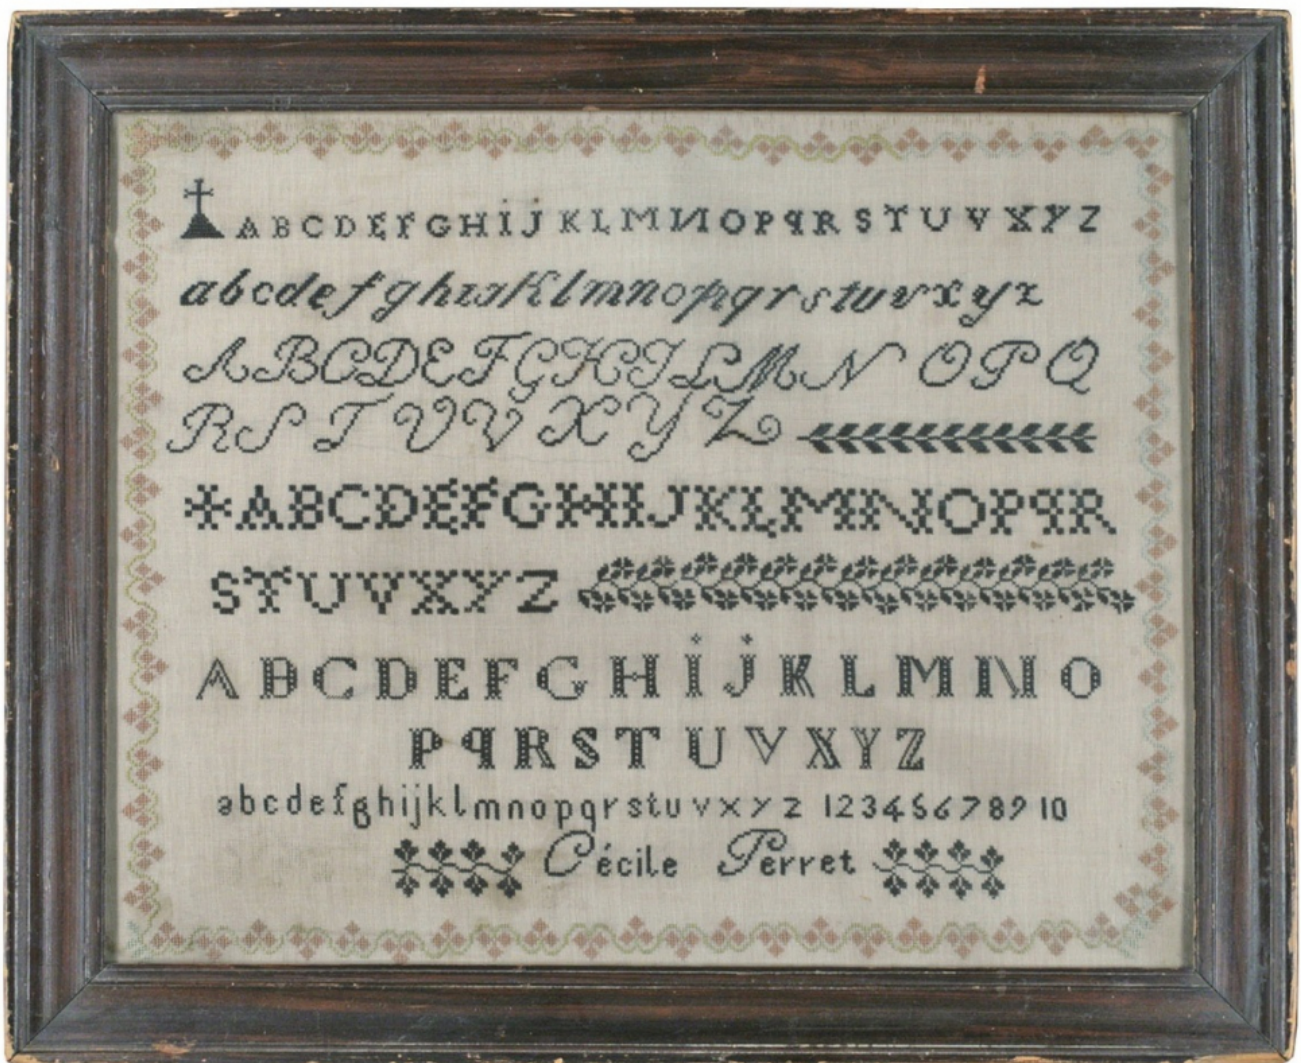 ABCDEFGHIJKLMNOPQRSTUVXYZ
abcdefghijKlmnopqrstuvxyz
ABCDEFGHILMNOPQ
RSTUVXYZ
ABCDEFGHIJKLMNOPQR
STUVXYZ
ABCDEFGHIJKLMNO
PQRSTUVXYZ
abcdefghijklmnopqrstuvxyz 12345678910
Cécile Perret